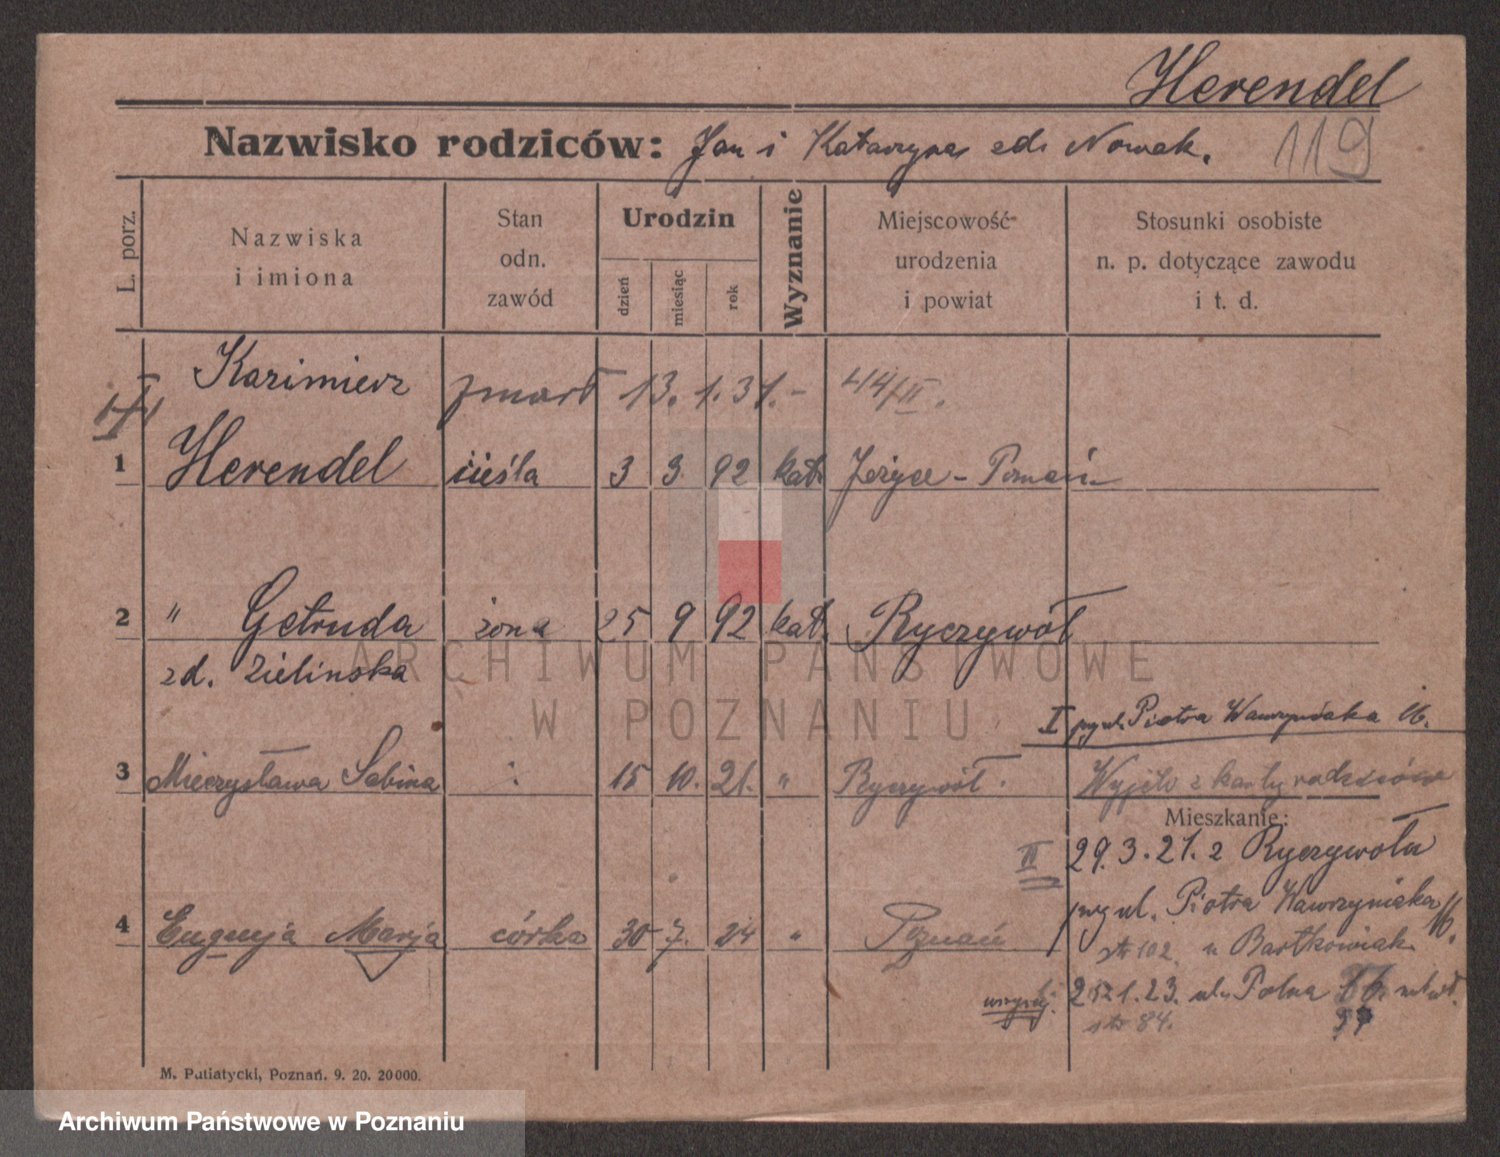 Herendel
Nazwisko rodziców: Jan i Katarzyna zd. Nowak.
119
L. porz.
Nazwiska
i imiona
Stan
odn.
zawód
Urodzin
dzień
miesiąc
rok
Wyznanie
Miejscowość
urodzenia
i powiat
Stosunki osobiste
n. p. dotyczące zawodu
i t. d.
Kazimierz zmarł 13. 1. 31. - 414/II.
1 Herendel cieśla 3 3. 92 kat. Jeżyce - Poznań
2 " Getruda żona 25 9 92 kat. Ryczywół
zd. Zielinska
I przy ul. Piotra Wawrzyniaka 16.
3 Mieczysława Sabina 15 10. 21. " Ryczywół. Wyjęto z karty rodziców
Mieszkanie:
II 29. 3. 21. z Ryczywoła
przy ul. Piotra Wawrzyniaka 16.
4 Eugenja Marja córka 30 7. 24 " Poznań
str 102. u Bartkowiak
23. ul. Polna
str 84. 37
M. Putiatycki, Poznań. 9. 20. 20000.
ARCHIWUM PAŃSTWOWE
W POZNANIU
Archiwum Państwowe w Poznaniu